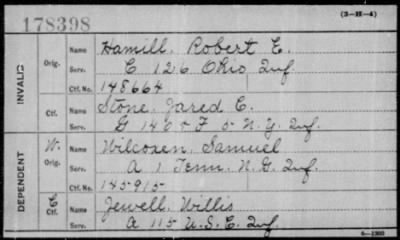 178398
(3-II-4)
INVALID
Orig.
Name Hamill, Robert E.
Serv. C 126 Ohio Inf.
Ctf. No. 148664
Ctf.
Name Stone, Jared C.
Serv. G 146 & F 5 N.Y. Inf.
Ctf. No.
DEPENDENT
W.
Orig.
Name Wilcoxen, Samuel
Serv. A 1 Tenn. N.G. Inf.
Ctf. No. 145915
C
Ctf.
Name Jewell, Willis
Serv. A 115 U.S.C. Inf.